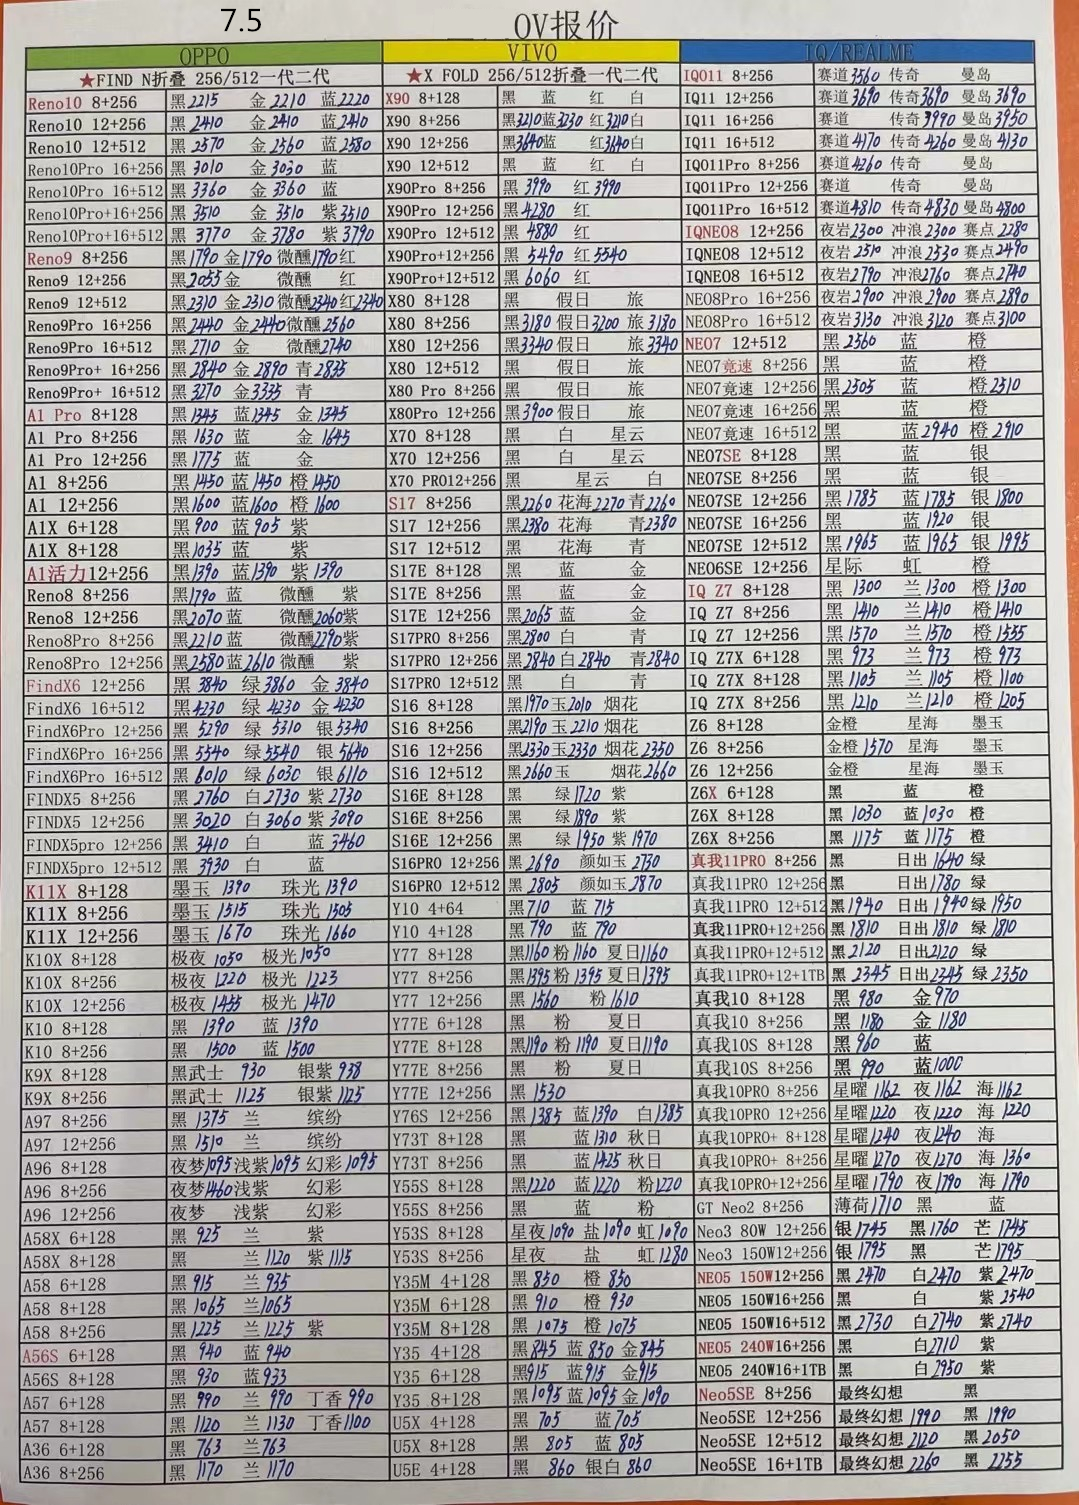 7.5
OV报价
OPPO VIVO IQ/REALME
★FIND N折叠 256/512一代二代 ★X FOLD 256/512折叠一代二代 IQ011 8+256 赛道3560 传奇 曼岛
Reno10 8+256 黑2215 金2210 蓝2220 X90 8+128 黑 蓝 红 白 IQ11 12+256 赛道3690 传奇3690 曼岛3690
Reno10 12+256 黑2410 金2410 蓝2410 X90 8+256 黑3210蓝3230 红3210白 IQ11 16+256 赛道 传奇3990 曼岛3950
Reno10 12+512 黑2570 金2560 蓝2580 X90 12+256 黑3640蓝 红3640白 IQ11 16+512 赛道4170 传奇4260 曼岛4130
Reno10Pro 16+256 黑3010 金3030 蓝 X90 12+512 黑 蓝 红 白 IQ011Pro 8+256 赛道4260 传奇 曼岛
Reno10Pro 16+512 黑3360 金3360 蓝 X90Pro 8+256 黑3990 红3990 IQ011Pro 12+256 赛道 传奇 曼岛
Reno10Pro+16+256 黑3510 金3510 紫3510 X90Pro 12+256 黑4280 红 IQ011Pro 16+512 赛道4810 传奇4830 曼岛4800
Reno10Pro+16+512 黑3770 金3780 紫3790 X90Pro 12+512 黑4880 红 IQNE08 12+256 夜岩2300 冲浪2300 赛点2280
Reno9 8+256 黑1790 金1790 微醺1790红 X90Pro+12+256 黑5490 红5540 IQNE08 12+512 夜岩2510 冲浪2530 赛点2490
Reno9 12+256 黑2055金 微醺 红 X90Pro+12+512 黑6060 红 IQNE08 16+512 夜岩2790 冲浪2760 赛点2740
Reno9 12+512 黑2310 金2310 微醺2340红2340 X80 8+128 黑 假日 旅 NE08Pro 16+256 夜岩2900 冲浪2900 赛点2890
Reno9Pro 16+256 黑2440 金2440微醺2560 X80 8+256 黑3180 假日3200 旅3180 NE08Pro 16+512 夜岩3130 冲浪3120 赛点3100
Reno9Pro 16+512 黑2710 金 微醺2740 X80 12+256 黑3340 假日 旅3340 NE07 12+512 黑2560 蓝 橙
Reno9Pro+ 16+256 黑2840 金2890 青2835 X80 12+512 黑 假日 旅 NE07竞速 8+256 黑 蓝 橙
Reno9Pro+ 16+512 黑3270 金3335 青 X80 Pro 8+256 黑 假日 旅 NE07竞速 12+256 黑2505 蓝 橙2510
A1 Pro 8+128 黑1345 蓝1345 金1345 X80Pro 12+256 黑3900 假日 旅 NE07竞速 16+256 黑 蓝 橙
A1 Pro 8+256 黑1630 蓝 金1645 X70 8+128 黑 白 星云 NE07竞速 16+512 黑 蓝2940 橙2910
A1 Pro 12+256 黑1775 蓝 金 X70 12+256 黑 白 星云 NE07SE 8+128 黑 蓝 银
A1 8+256 黑1450 蓝1450 橙1450 X70 PRO12+256 黑 星云 白 NE07SE 8+256 黑 蓝 银
A1 12+256 黑1600 蓝1600 橙1600 S17 8+256 黑2260 花海2270 青2260 NE07SE 12+256 黑1785 蓝1785 银1800
A1X 6+128 黑900 蓝905 紫 S17 12+256 黑2380 花海 青2380 NE07SE 16+256 黑 蓝1920 银
A1X 8+128 黑1035 蓝 紫 S17 12+512 黑 花海 青 NE07SE 12+512 黑1965 蓝1965 银1995
A1活力12+256 黑1390 蓝1390 紫1390 S17E 8+128 黑 蓝 金 NE06SE 12+256 星际 虹 橙
Reno8 8+256 黑1790 蓝 微醺 紫 S17E 8+256 黑 蓝 金 IQ Z7 8+128 黑1300 兰1300 橙1300
Reno8 12+256 黑2070 蓝 微醺2060紫 S17E 12+256 黑2065 蓝 金 IQ Z7 8+256 黑1410 兰1410 橙1410
Reno8Pro 8+256 黑2210 蓝 微醺2290紫 S17PRO 8+256 黑2800 白 青 IQ Z7 12+256 黑1570 兰1570 橙1555
Reno8Pro 12+256 黑2580 蓝2610 微醺 紫 S17PRO 12+256 黑2840 白2840 青2840 IQ Z7X 6+128 黑973 兰973 橙973
FindX6 12+256 黑3840 绿3860 金3840 S17PRO 12+512 黑 白 青 IQ Z7X 8+128 黑1105 兰1105 橙1100
FindX6 16+512 黑4230 绿4230 金4230 S16 8+128 黑1970玉2010 烟花 IQ Z7X 8+256 黑1210 兰1210 橙1205
FindX6Pro 12+256 黑5290 绿5310 银5340 S16 8+256 黑2190 玉2210 烟花 Z6 8+128 金橙 星海 墨玉
FindX6Pro 16+256 黑5540 绿5540 银5640 S16 12+256 黑2330玉2330 烟花2350 Z6 8+256 金橙1570 星海 墨玉
FindX6Pro 16+512 黑6010 绿6030 银6110 S16 12+512 黑2660玉 烟花2660 Z6 12+256 金橙 星海 墨玉
FINDX5 8+256 黑2760 白2730 紫2730 S16E 8+128 黑 绿1720 紫 Z6X 6+128 黑 蓝 橙
FINDX5 12+256 黑3020 白3060 紫3090 S16E 8+256 黑 绿1890 紫 Z6X 8+128 黑1030 蓝1030 橙
FINDX5pro 12+256 黑3410 白 蓝3460 S16E 12+256 黑 绿1950 紫1970 Z6X 8+256 黑1175 蓝1175 橙
FINDX5pro 12+512 黑3930 白 蓝 S16PRO 12+256 黑2690 颜如玉2730 真我11PRO 8+256 黑 日出1640 绿
K11X 8+128 墨玉1390 珠光1390 S16PRO 12+512 黑2805 颜如玉2870 真我11PRO 12+256 黑 日出1780 绿
K11X 8+256 墨玉1515 珠光1505 Y10 4+64 黑710 蓝715 真我11PRO 12+512 黑1940 日出1940绿1950
K11X 12+256 墨玉1670 珠光1660 Y10 4+128 黑790 蓝790 真我11PRO+12+256 黑1810 日出1810 绿1810
K10X 8+128 极夜1050 极光1050 Y77 8+128 黑1160 粉1160 夏日1160 真我11PRO+12+512 黑2120 日出2120 绿
K10X 8+256 极夜1220 极光1223 Y77 8+256 黑1395 粉1395 夏日1395 真我11PRO+12+1TB 黑2345 日出2345 绿2350
K10X 12+256 极夜1455 极光1470 Y77 12+256 黑1560 粉1610 真我10 8+128 黑980 金970
K10 8+128 黑1390 蓝1390 Y77E 6+128 黑 粉 夏日 真我10 8+256 黑1180 金1180
K10 8+256 黑1500 蓝1500 Y77E 8+128 黑1190 粉1190 夏日1190 真我10S 8+128 黑960 蓝
K9X 8+128 黑武士930 银紫938 Y77E 8+256 黑 粉 夏日 真我10S 8+256 黑990 蓝1000
K9X 8+256 黑武士1125 银紫1125 Y77E 12+256 黑1530 真我10PRO 8+256 星曜1162 夜1162 海1162
A97 8+256 黑1375 兰 缤纷 Y76S 12+256 黑1385 蓝1390 白1385 真我10PRO 12+256 星曜1220 夜1220 海1220
A97 12+256 黑1510 兰 缤纷 Y73T 8+128 黑 蓝1310 秋日 真我10PRO+ 8+128 星曜1240 夜1240 海
A96 8+128 夜梦1095浅紫1095 幻彩1095 Y73T 8+256 黑 蓝1425 秋日 真我10PRO+ 8+256 星曜1270 夜1270 海1360
A96 8+256 夜梦1460浅紫 幻彩 Y55S 8+128 黑1220 蓝1220 粉1220 真我10PRO+12+256 星曜1790 夜1790 海1790
A96 12+256 夜梦 浅紫 幻彩 Y55S 8+256 黑 蓝 粉 GT Neo2 8+256 薄荷1710 黑 蓝
A58X 6+128 黑925 兰 紫 Y53S 8+128 星夜1090 盐1090 虹1090 Neo3 80W 12+256 银1745 黑1760 芒1745
A58X 8+128 黑 兰1120 紫1115 Y53S 8+256 星夜 盐 虹1280 Neo3 150W12+256 银1795 黑 芒1795
A58 6+128 黑915 兰935 Y35M 4+128 黑850 橙850 NE05 150W12+256 黑2470 白2470 紫2470
A58 8+128 黑1065 兰1065 Y35M 6+128 黑910 橙930 NE05 150W16+256 黑 白 紫2540
A58 8+256 黑1225 兰1225 紫 Y35M 8+128 黑1075 橙1075 NE05 150W16+512 黑2730 白2740 紫2740
A56S 6+128 黑940 蓝940 Y35 4+128 黑845 蓝850 金845 NE05 240W16+256 黑 白2710 紫
A56S 8+128 黑930 蓝933 Y35 6+128 黑915 蓝915 金915 NE05 240W16+1TB 黑 白2950 紫
A57 6+128 黑990 兰990 丁香990 Y35 8+128 黑1095 蓝1095 金1090 Neo5SE 8+256 最终幻想 黑
A57 8+128 黑1120 兰1130 丁香1100 U5X 4+128 黑705 蓝705 Neo5SE 12+256 最终幻想1990 黑1990
A36 6+128 黑763 兰763 U5X 8+128 黑805 蓝805 Neo5SE 12+512 最终幻想2120 黑2050
A36 8+256 黑1170 兰1170 U5E 4+128 黑860 银白860 Neo5SE 16+1TB 最终幻想2260 黑2255